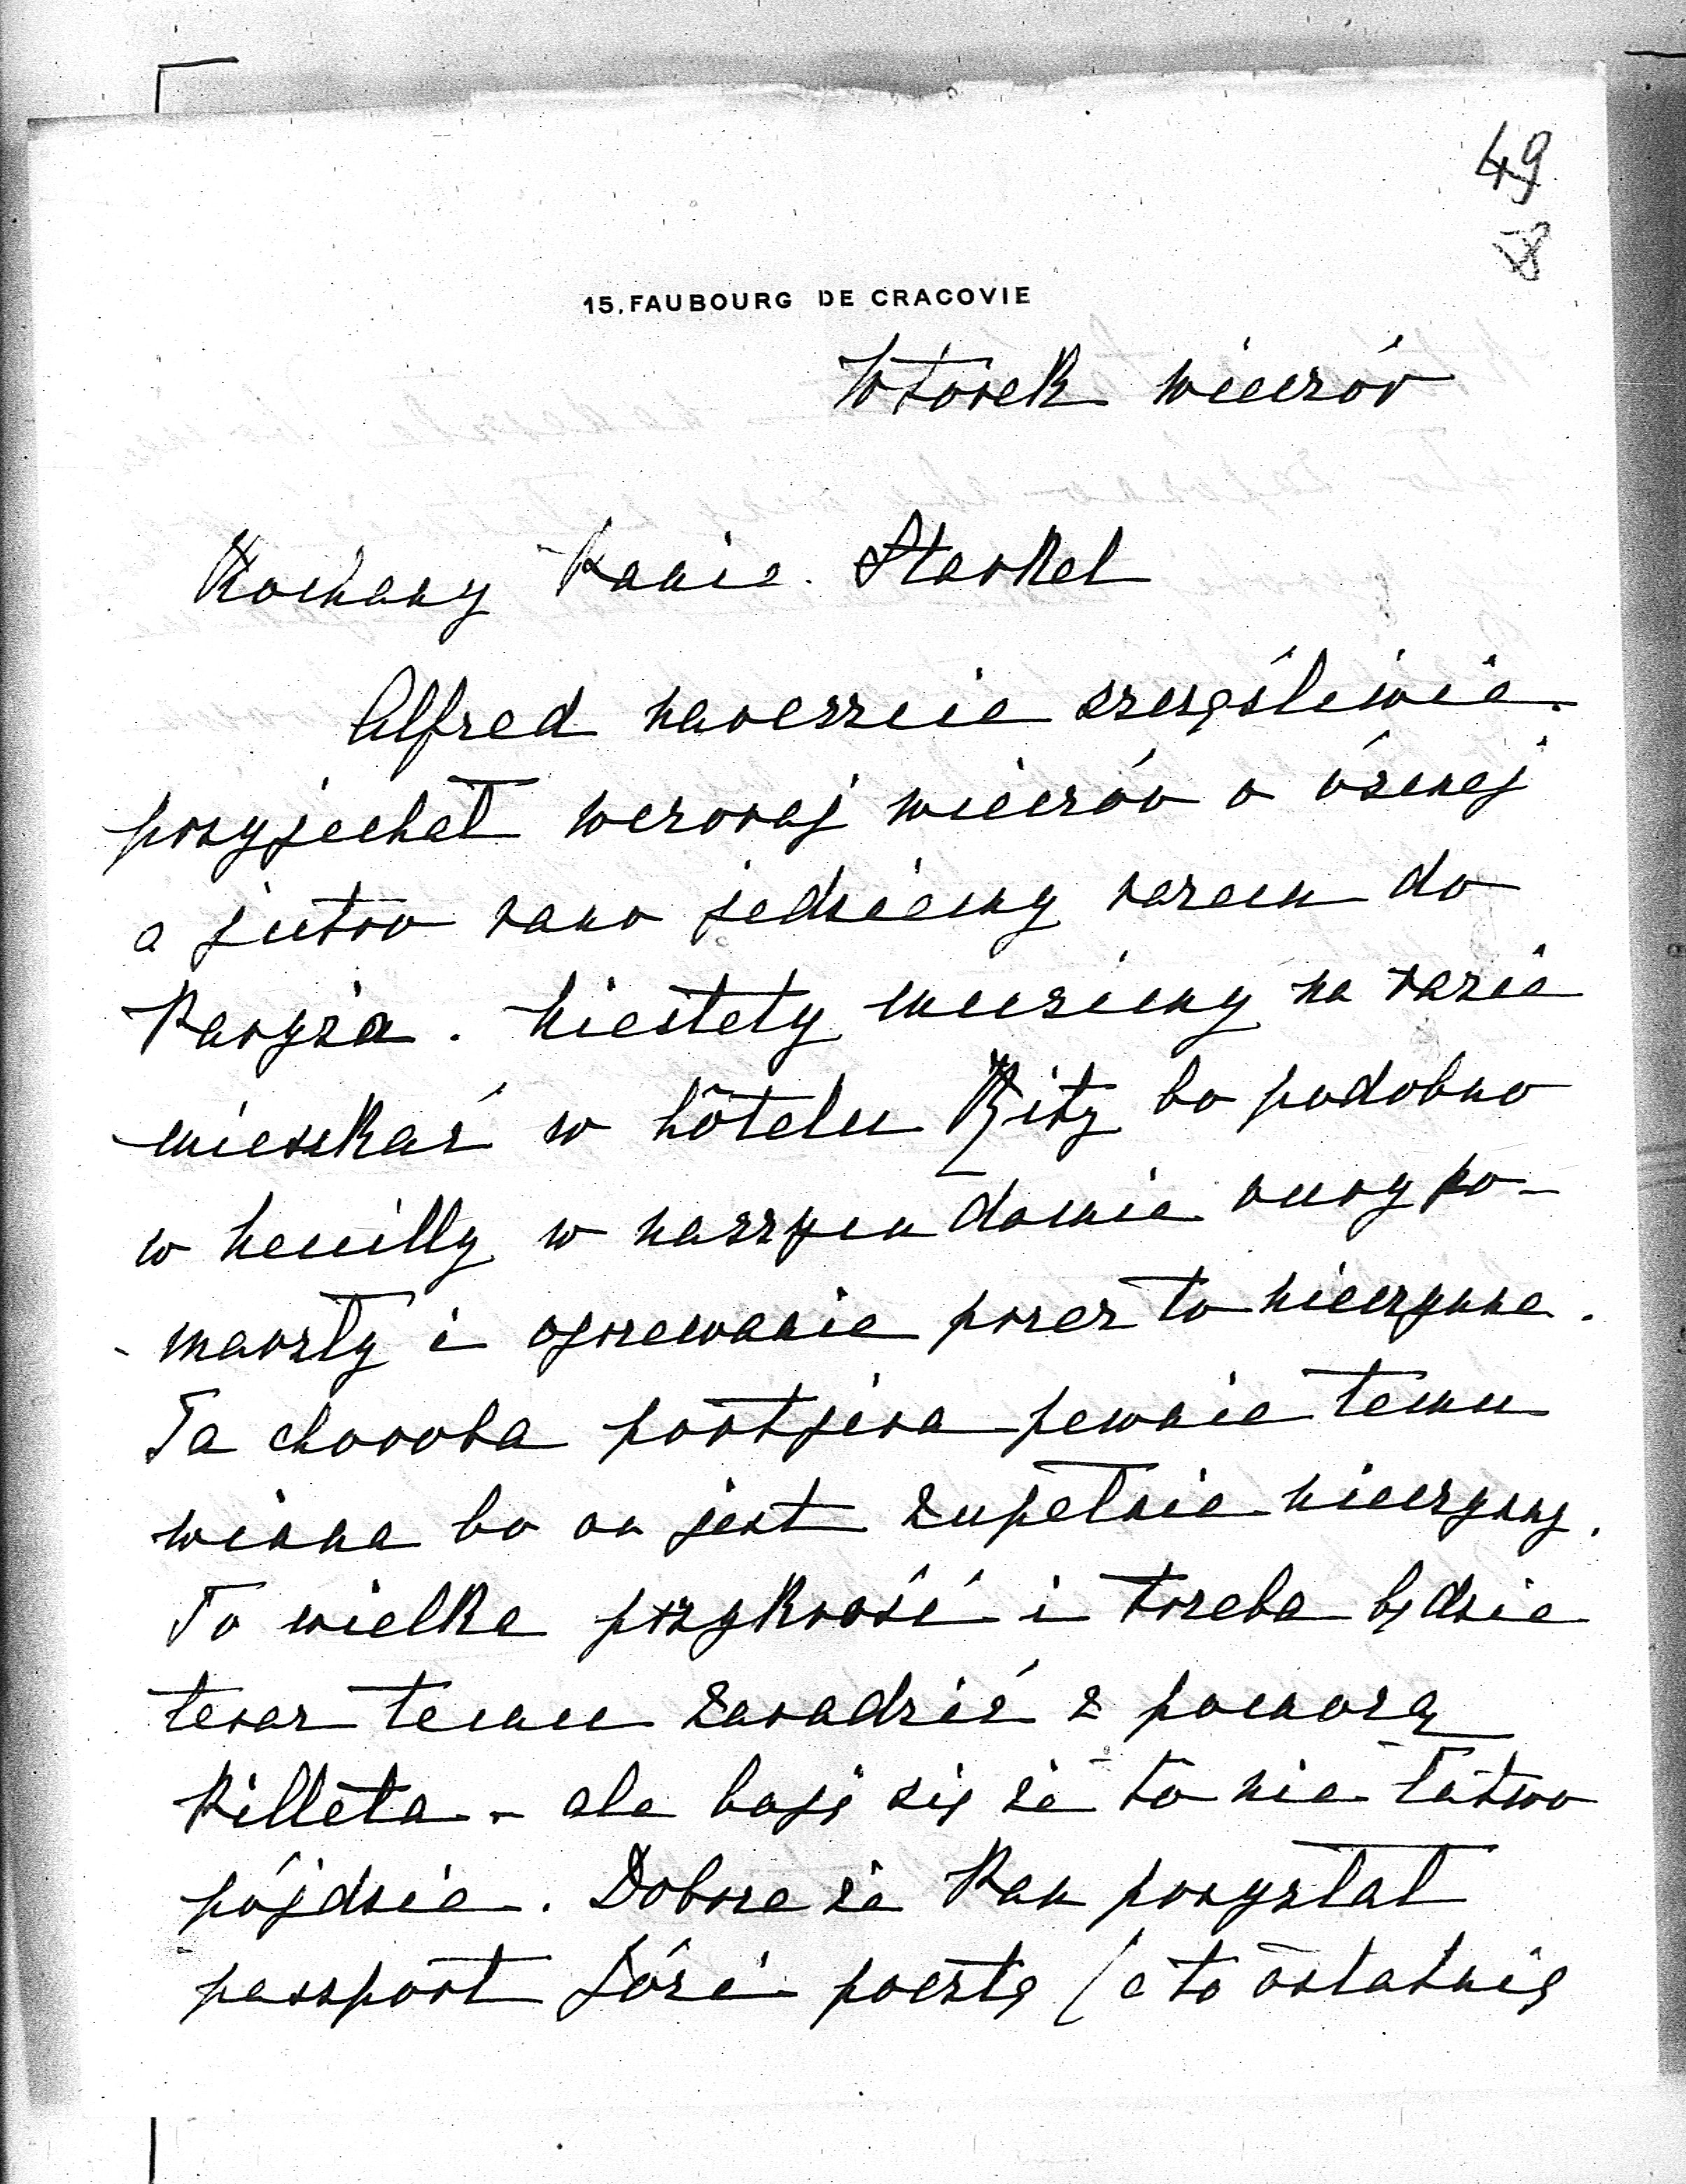 49
58
15, FAUBOURG DE CRACOVIE
Wtorek wieczór
Kochany Panie Starkel
Alfred nareszcie szczęśliwie
przyjechał wczoraj wieczór o ósmej
a jutro rano jedziemy razem do
Paryża. Niestety musiemy na razie
mieszkać w hôtelu Ritz bo podobno
w Neuilly w naszym domie rury po-
marzły i ogrzewanie przez to nieczynne.
Ta choroba portjera pewnie temu
winna bo on jest zupełnie nieczynny.
To wielka przykrość i trzeba będzie
teraz temu zaradzić z pomocą
Pilleta - ale boję się że to nie łatwo
pójdzie. Dobrze że Pan przysłał
passport Józi pocztą (a to ostatnią